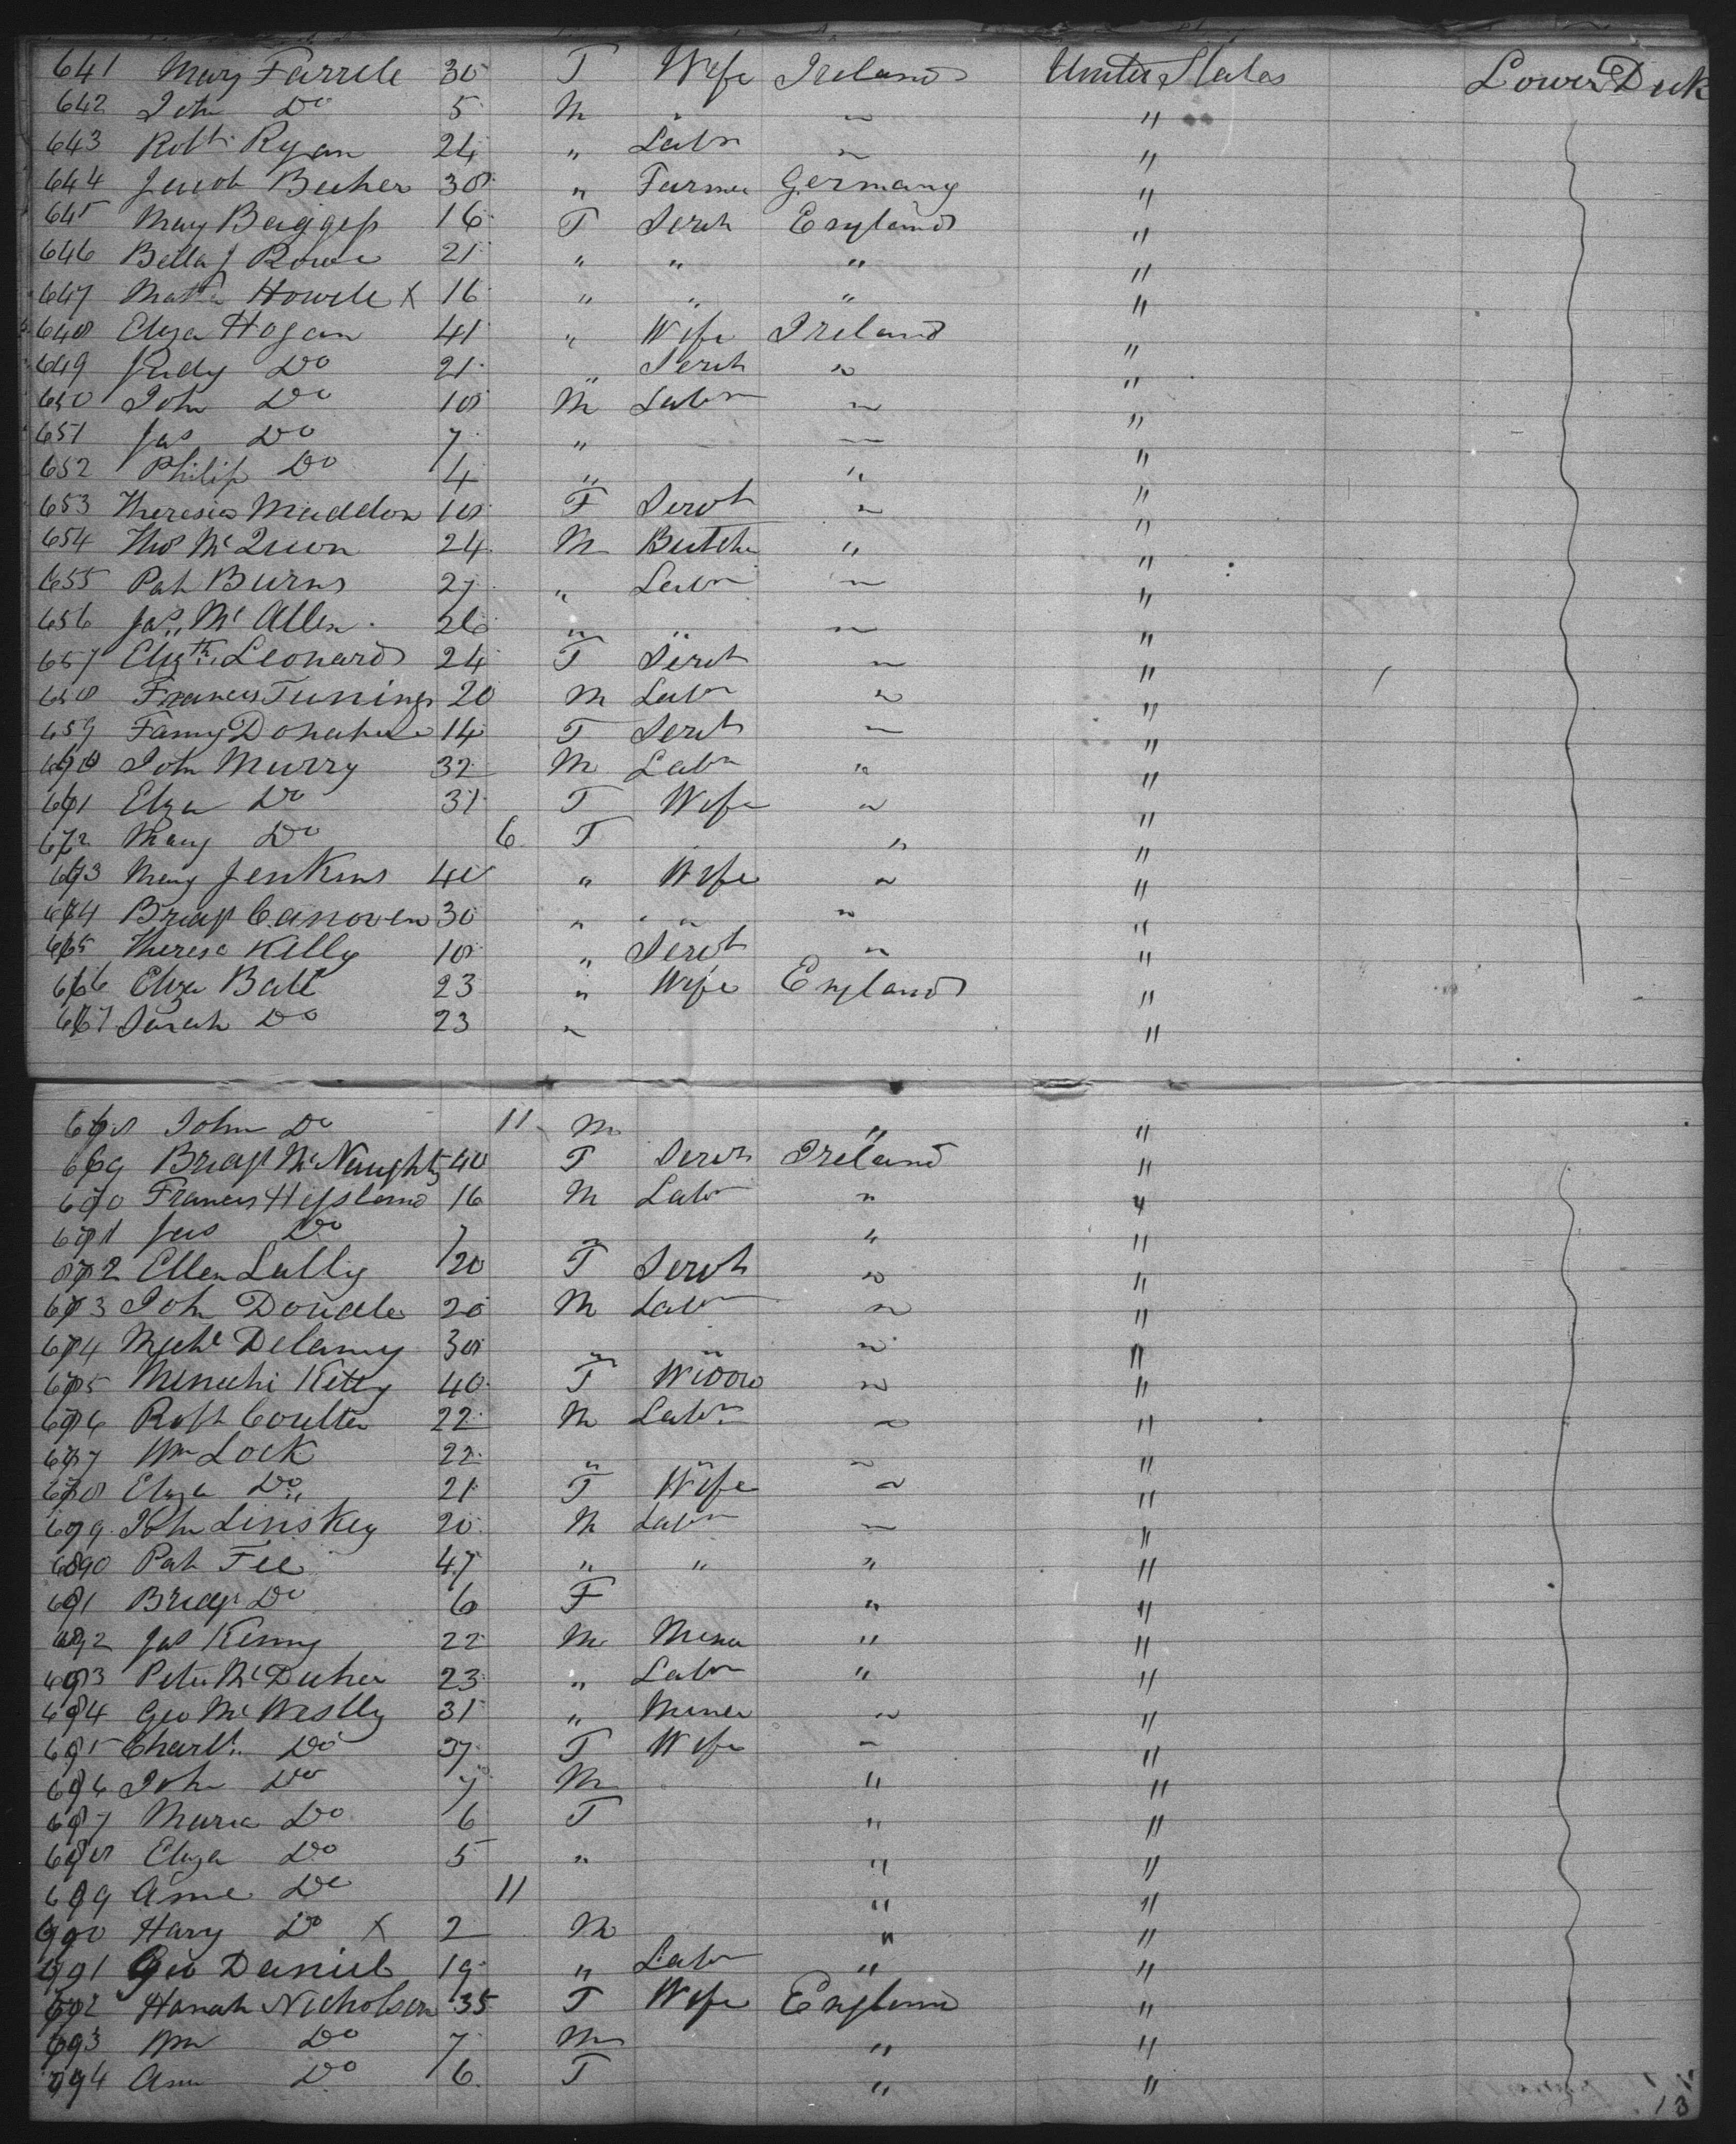 641 Mary Farrele 30 F Wife Ireland United States Lower Deck
642 John Do 5 M " " "
643 Robt Ryan 24 " Labr " "
644 Jacob Becher 38 " Farmer Germany "
645 Mary Baggess 16 F Servt England "
646 Bella J Rowe 21 " " " "
647 Howele X 16 " " " "
648 Eliza Hogan 41 " Wife Ireland "
649 Judy Do 21 " Servt " "
650 John Do 18 M Labr " "
651 Jas Do 7 " " "
652 Philip Do 4 " " "
653 Theresia Maddon 18 F Servt " "
654 Thos McQuon 24 M Butche " "
655 Pat Burns 27 " Labr " "
656 Jas McAllen 26 " " " "
657 Elizth Leonard 24 F Servt " "
658 Francis 20 M Labr " "
659 Fanny Donahue 14 F Servt " "
660 John Murry 32 M Labr " "
661 Eliza Do 31 F Wife " "
662 Mary Do 6 F " "
663 Mary Jenkins 40 " Wife " "
664 Bridgt Canoven 30 " " " "
665 Theresa Kelly 18 " Servt " "
666 Eliza Ball 23 " Wife England "
667 Sarah Do 23 " "
668 John Do 11 M " "
669 Bridgt McNaughty 40 F Servt Ireland "
670 Francis Hysland 16 M Labr " "
671 Jas Do 7 " " "
672 Ellen Lally 20 F Servt " "
673 John Doudle 20 M Labr " "
674 Michl Delamy 38 " " " "
675 Kitty 40 F Widow " "
676 Robt Coulter 22 M Labr " "
677 Wm Lock 22 " " " "
678 Eliza Do 21 F Wife " "
679 John Linskey 20 M Labr " "
680 Pat Fee 47 " " " "
681 Bridgt Do 6 F " "
682 Jas Kenny 22 M Miner " "
683 Peter McDuher 23 " Labr " "
684 Geo McNestly 31 " Miner " "
685 Charlt Do 37 F Wife " "
686 John Do 7 M " "
687 Maria Do 6 F " "
688 Eliza Do 5 " " "
689 Ame Do 11 " "
690 Hary Do X 2 M " "
691 Geo Daniel 19 " Labr " "
692 Hanah Nicholson 35 F Wife England "
693 Wm Do 7 M " "
694 Ann Do 6 F " "